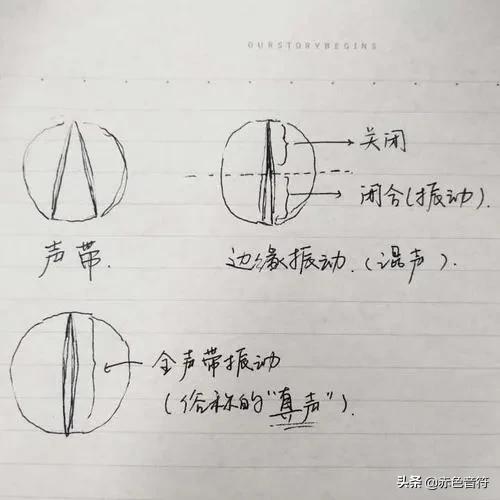 OURSTORYBEGINS
关闭
闭合(振动).
声带.
边缘振动.(混声).
全声带振动
(俗称的"真声").
头条@赤色音符